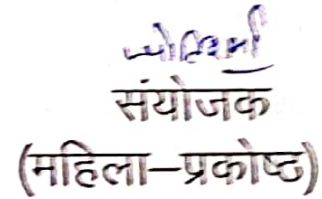 संयोजक
(महिला–प्रकोष्ठ)